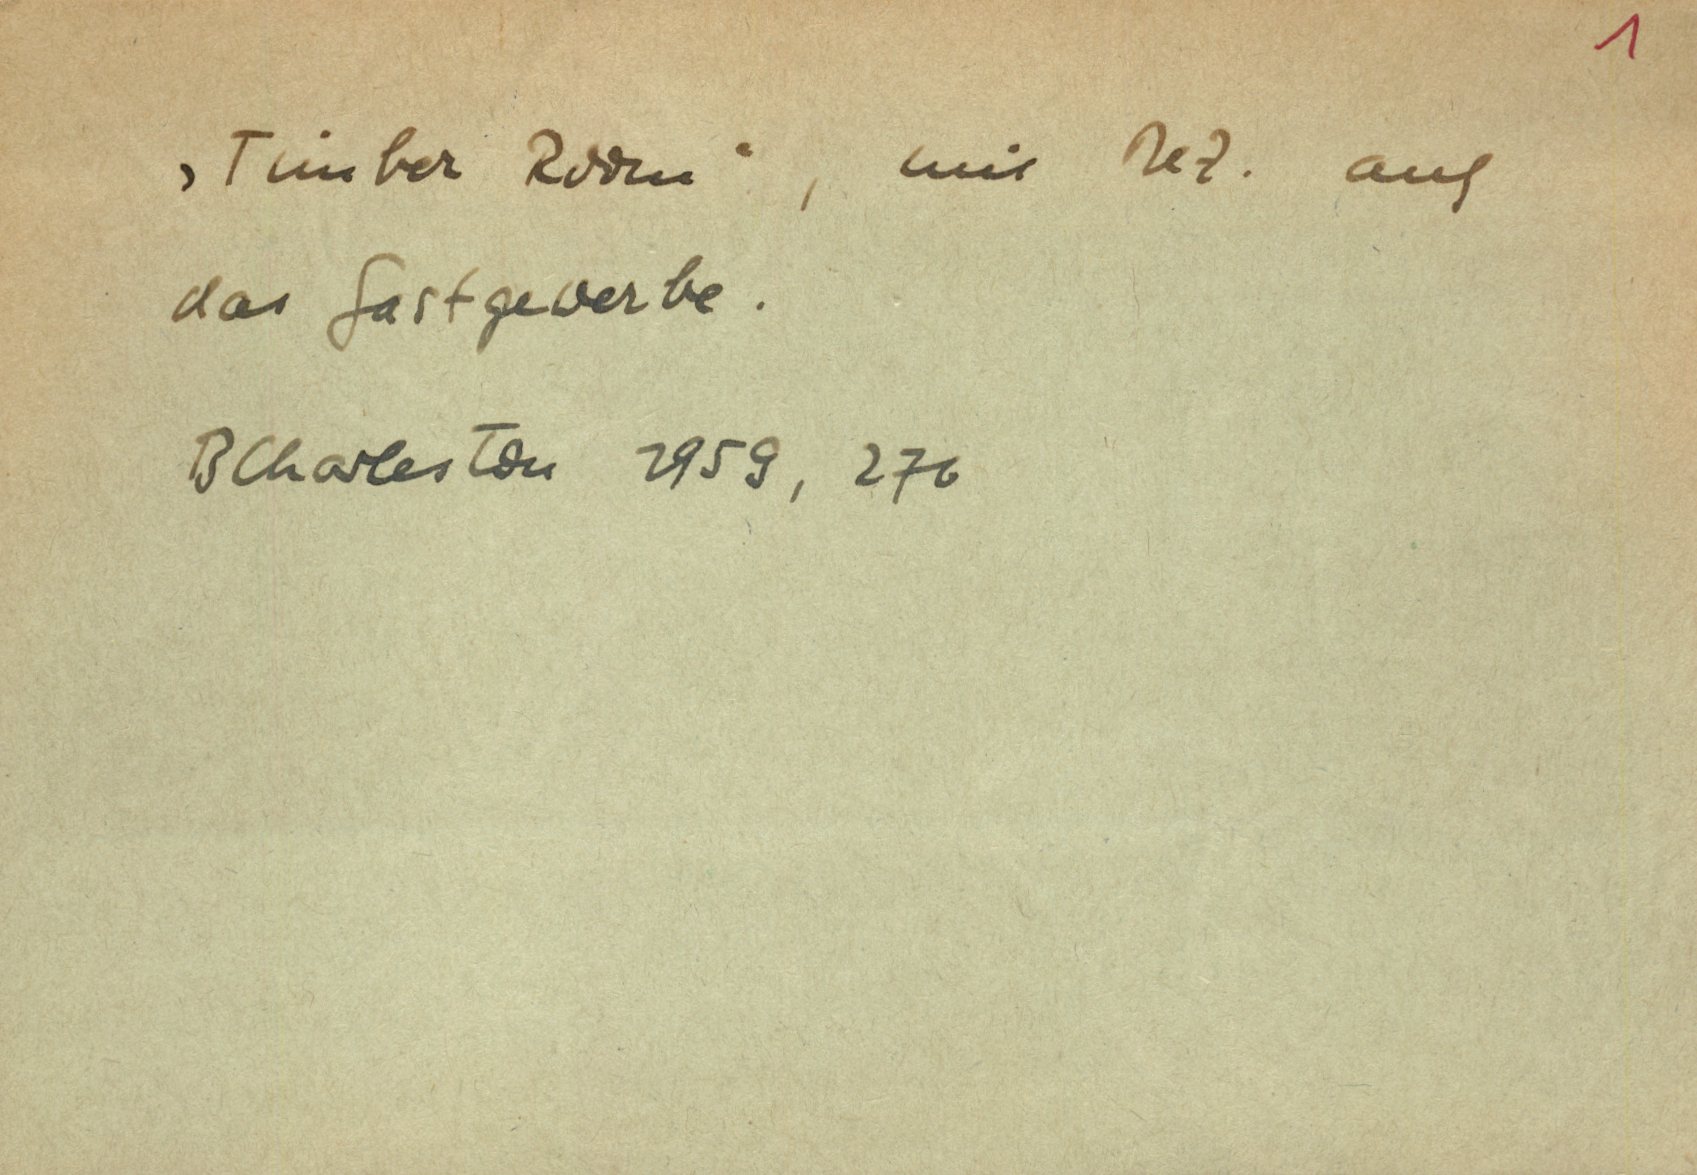 1
„Timber Room“, mit Bez. auf
das Gastgewerbe.
BCharleston 1959, 276